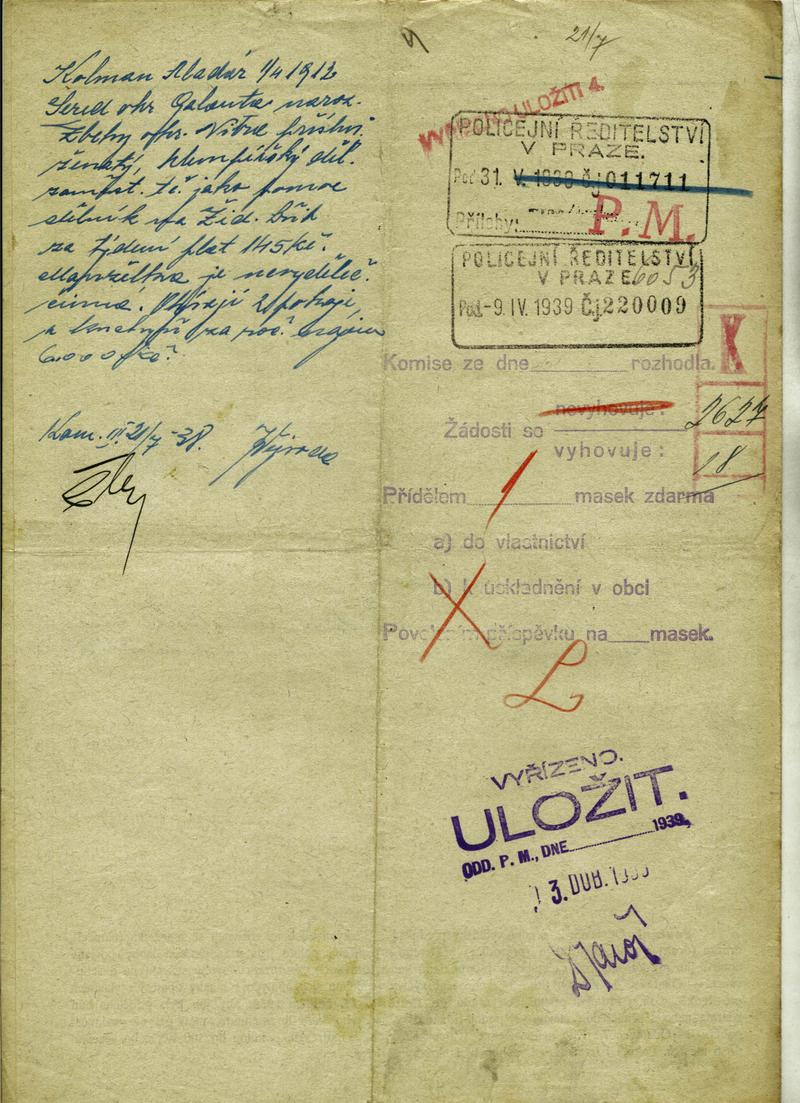 Kolman Aladár 1/4 1912
Sereď okr Galanta naroz.
Zbehy okr. Nitra příslu.
ženatý, klempířský děl.
zaměst. t.č. jako pomoc
dělník na Žid.
za týdení plat 145 Kč.
Manželka je nevýděleč.
činna. Obývají 2 pokoje,
a kuchyň za roč.
6.000 Kč.
Kom. 21/7 -38.
21/7
ULOŽITI 4.
POLICEJNÍ ŘEDITELSTVÍ
V PRAZE.
31. V. 1939 čj 011711
Přílohy:
P. M.
POLICEJNÍ ŘEDITELSTVÍ
V PRAZE 6053
Pod -9. IV. 1939 Čj. 220009
K
Komise ze dne rozhodla.
nevyhovuje:
2627
Žádosti se
vyhovuje:
18
Přídělem 1 masek zdarma
a) do vlastnictví
b) k uskladnění v obci
Povolením příspěvku na masek.
L
VYŘÍZENO.
ULOŽIT.
ODD. P. M., DNE 1939,
3. DUB. 1939